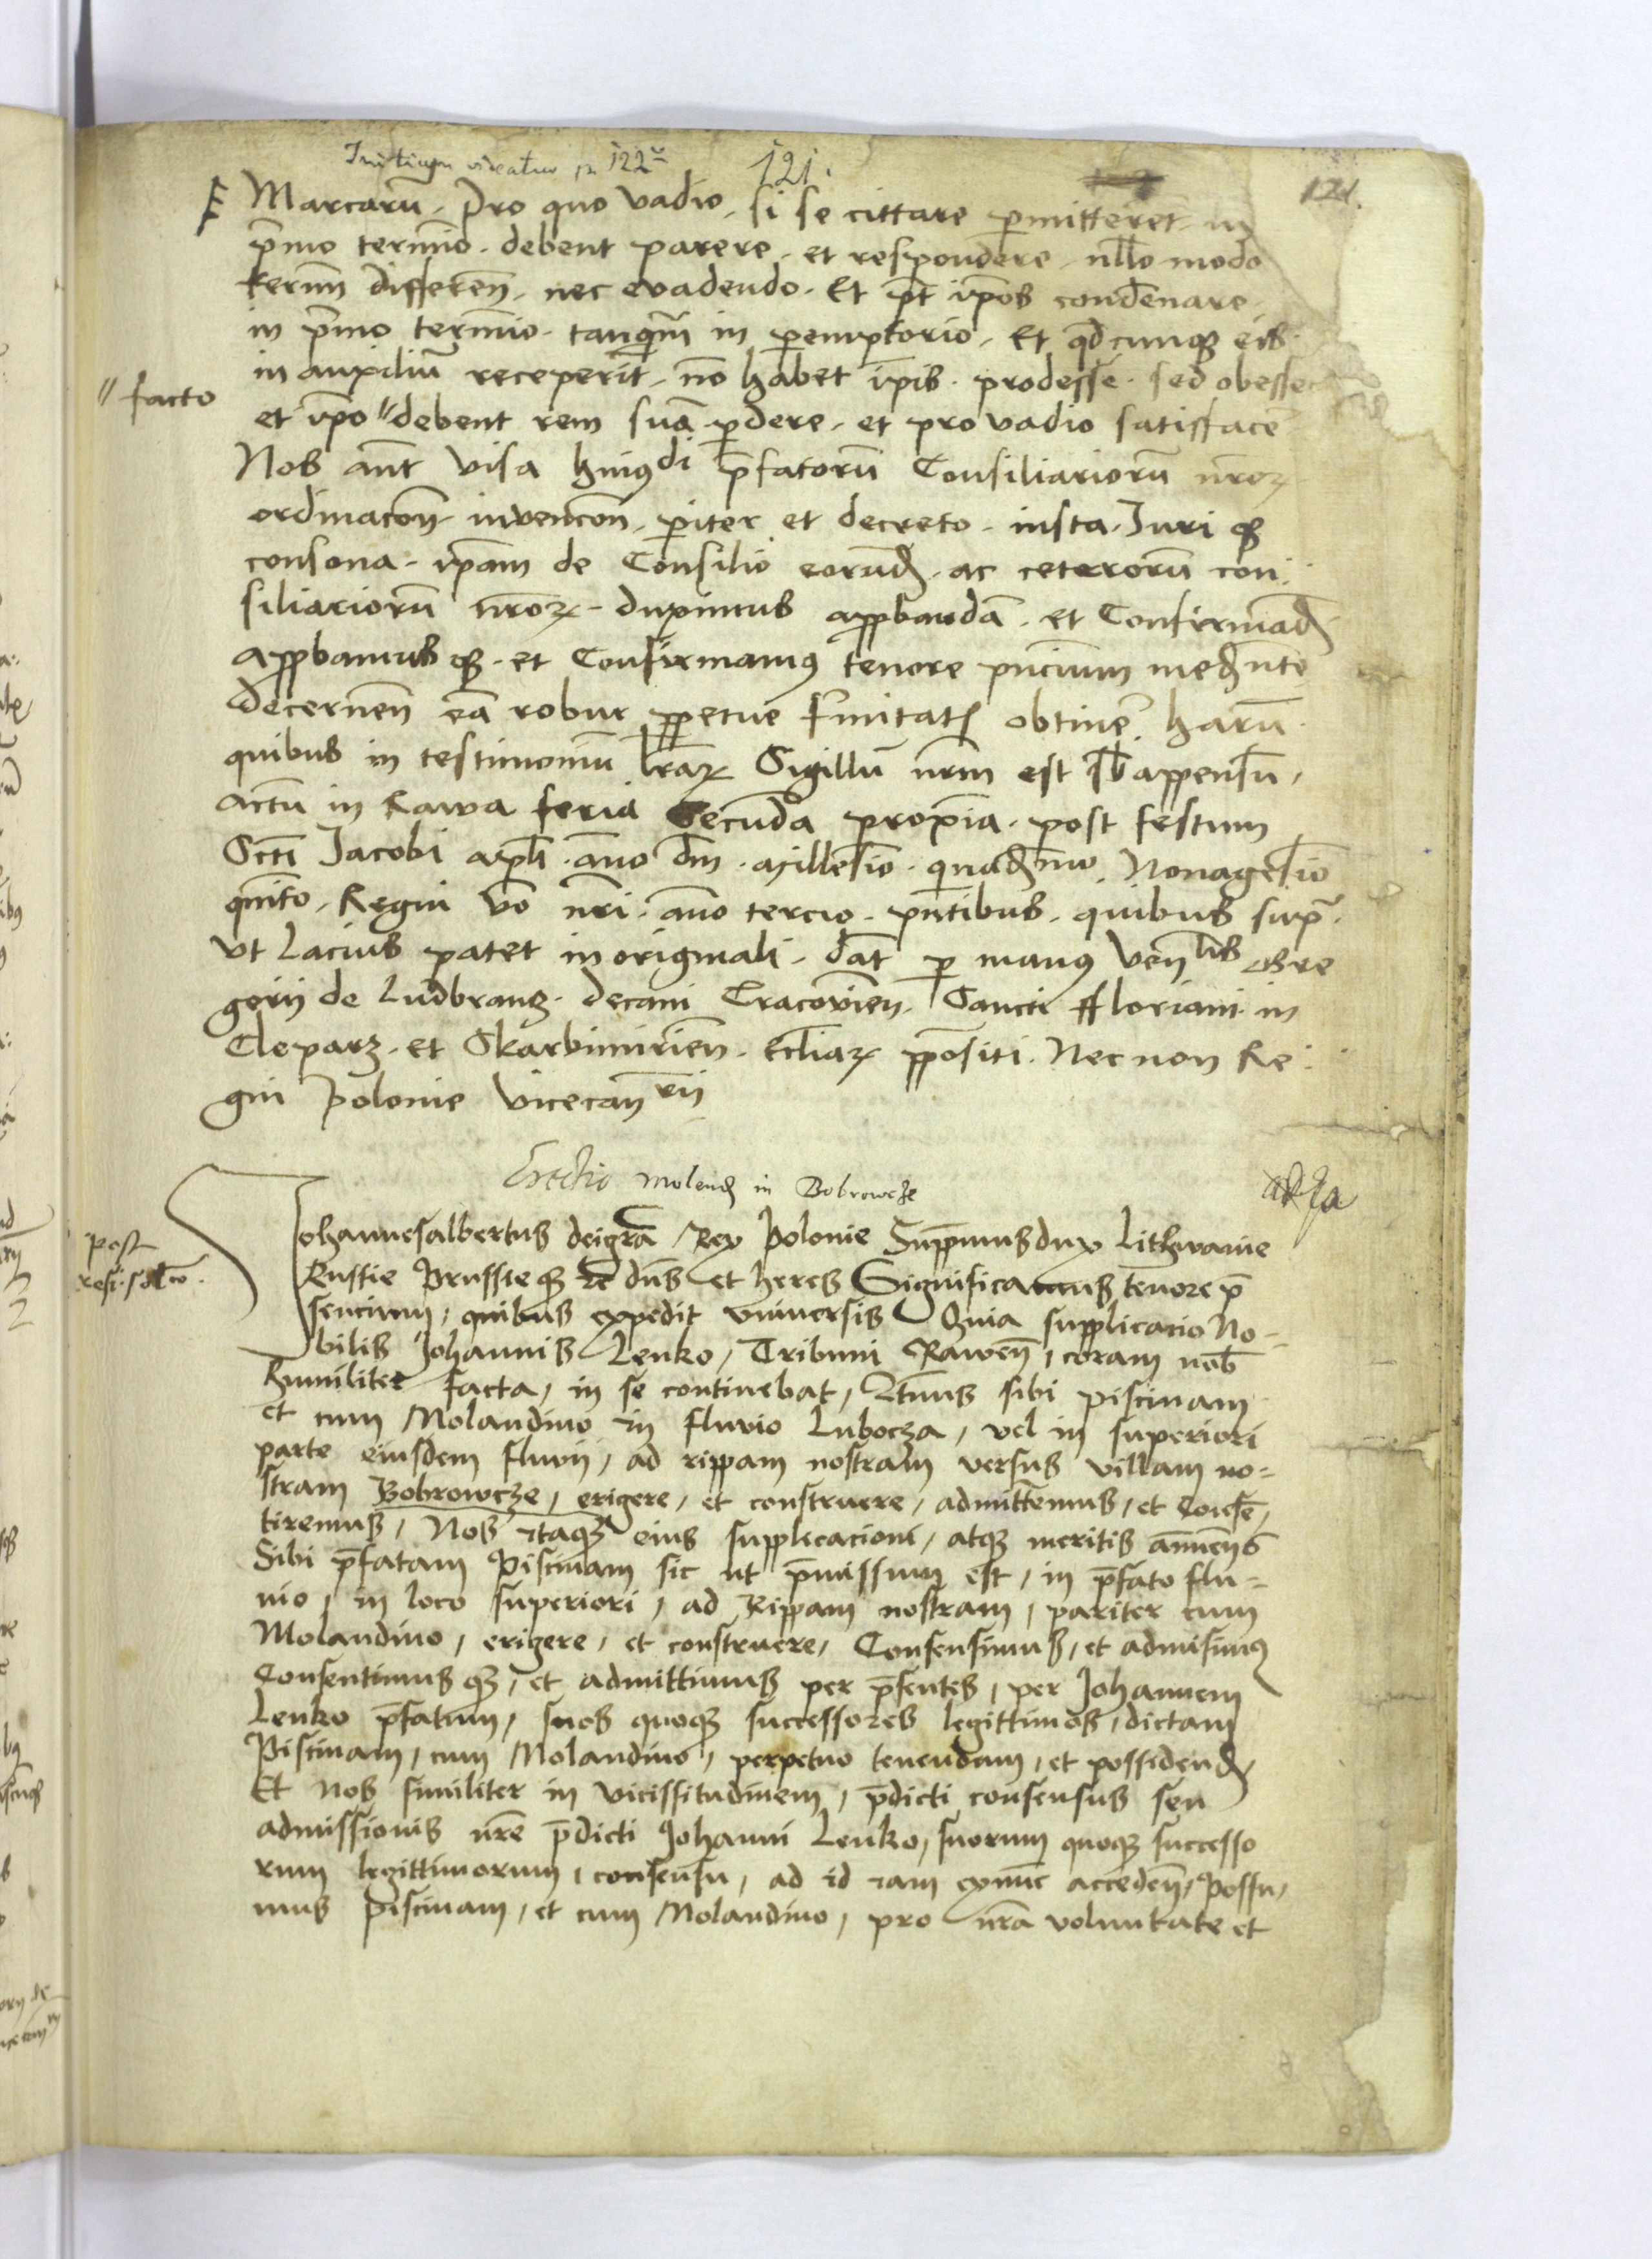 Initium videatur in 122
121.
121.
Marcarū. Pro quo vadio. si se cittare ꝑmitterēt in
pͥmo terminͦo. debent parere. et respondere. nllo modo
termīn differēn. nec evadendo. Et pt ip̄os condēnare.
in pͥmo termīo. tanqͣm in peremptorio. Et qd cunqꝫ eis
in auxiliū receperit. nō habet ip̄is. prodesse. sed obesse
// facto
et ip̄o // debent rem suā ꝑdere. et pro vadio satisfacē
Nos aūt visa huiꝰdi p̄fatorū Consiliariorū nr̄oꝝ
ordinacōn invencōn. ꝑiter et decreto. iusta. Iuri qꝫ
consona. ip̄am de Consilio eorūdꝫ. ac ceterorū con
siliariorū nr̄oꝝ. duximus appbandā. et Confirmādꝫ
appbamus qꝫ. et Confirmamꝰ tenore pn̄cium medn̄te
decernēn eā robur ꝑpetue firmitatꝭ obtinē. harū
quibus in testimoniū lr̄aꝝ Sigillū nr̄m est sb̄appensū,
actū in Rawa feria Secūda proxīa. post festum
Scti Jacobi apl̄i. āno dm̄. Millesīo. quadꝫmo. Nonagesīo
qnīto. Regni vo nr̄i. āno tercio. pn̄tibus. quibus supͣ.
vt Lacius patet in originali. dat̄ ꝑ manꝰ Venlis Gre
gorii de Ludbranz. decani Cracovien. Sancti Floriani in
Cleparz. et Skarbimirien. Eccliaꝝ ppositi. Nec non Re
gni Polonie Vicecanrii
Erectio Molend in Bobrowcze
Post
rest. solō.
Johannesalbertus deigrā Rex Polonie Supp̄musdux Lithwanie
Russie Prussie qꝫ dn̄s et heres Significamus tenore p̄
sencium, quibus expedit vniversis Quia supplicacio No-
bilis Johannis Lenko, Tribuni Rawēn, coram nob̄
humiliter facta, in se continebat, Qtnus sibi piscinam
et cum Molandino in fluvio Lubocza, vel in superiori
parte eiusdem fluvii, ad rippam nostram versus villam no=
stram Bobrowcze, erigere, et construere, admittemus, et Consē,
tiremus, Nos itaqꝫ eius supplicacioni, atqꝫ meritis annuēns
Sibi p̄fatam Piscinam sic ut p̄missum est, in p̄fato flu=
uio, in loco superiori, ad Rippam nostram, pariter cum
Molandino, erigere, et construere, Consensimus, et admisimꝰ
Consentimus qꝫ, et admittimus per p̄sentes, per Johannem
Lenko p̄fatum, suos quoqꝫ successores legittimos, dictam
Piscinam, cum Molandino, perpetuo tenendam, et possidendꝫ
Et nos similiter in vicissitudinem, p̄dicti consensus seu
admissionis nr̄e p̄dicti Johanni Lenko, suorum quoqꝫ successo
rum legittimorum, consensu, ad id iam exnunc accedēn, Possu,
mus Piscinam, et cum Molandino, pro nr̄a voluntate et